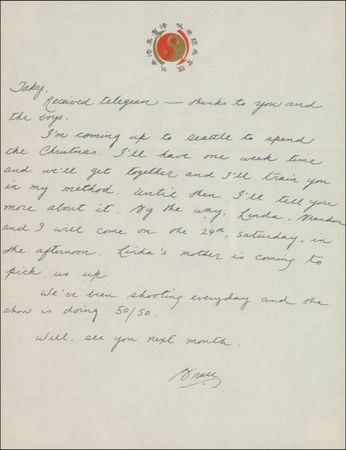 Taky,
Received telegram — thanks to you and
the boys.
I'm coming up to Seattle to spend
the Christmas. I'll have one week time
and we'll get together and I'll train you
in my method. Until then I'll tell you
more about it. By the way, Linda, Brandon
and I will come on the 24th, Saturday, in
the afternoon. Linda's mother is coming to
pick us up.
We've been shooting everyday and the
show is doing 50/50.
Well, see you next month.
Bruce